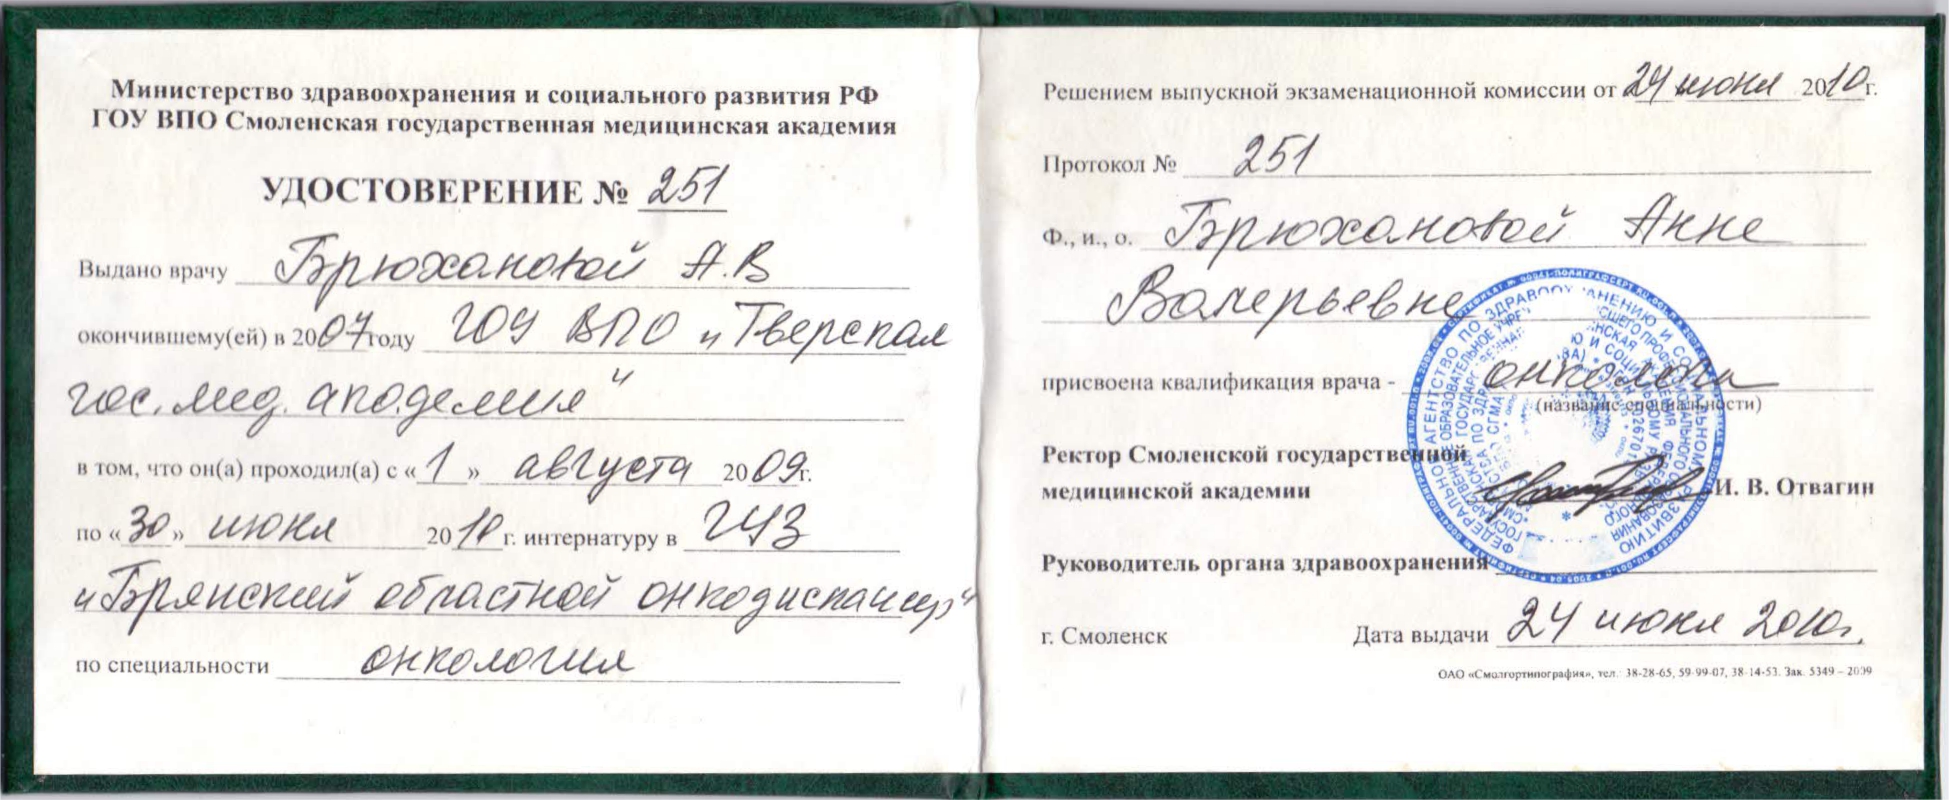 Министерство здравоохранения и социального развития РФ
ГОУ ВПО Смоленская государственная медицинская академия
УДОСТОВЕРЕНИЕ № 251
Выдано врачу Брюхановой А.В
окончившему(ей) в 2007 году ГОУ ВПО "Тверская
гос. мед. академия"
в том, что он(а) проходил(а) с «1» августа 2009г.
по «30» июня 2010г. интернатуру в ГУЗ
"Брянский областной онкодиспансер"
по специальности онкология
Решением выпускной экзаменационной комиссии от 24 июня 2010г.
Протокол № 251
Ф., и., о. Брюхановой Анне
Валерьевне
присвоена квалификация врача - онколога
(название специальности)
Ректор Смоленской государственной
медицинской академии И. В. Отвагин
Руководитель органа здравоохранения
г. Смоленск Дата выдачи 24 июня 2010г.
ОАО «Смолгортипография», тел.: 38-28-65, 59-99-07, 38-14-53. Зак. 5349 – 2009